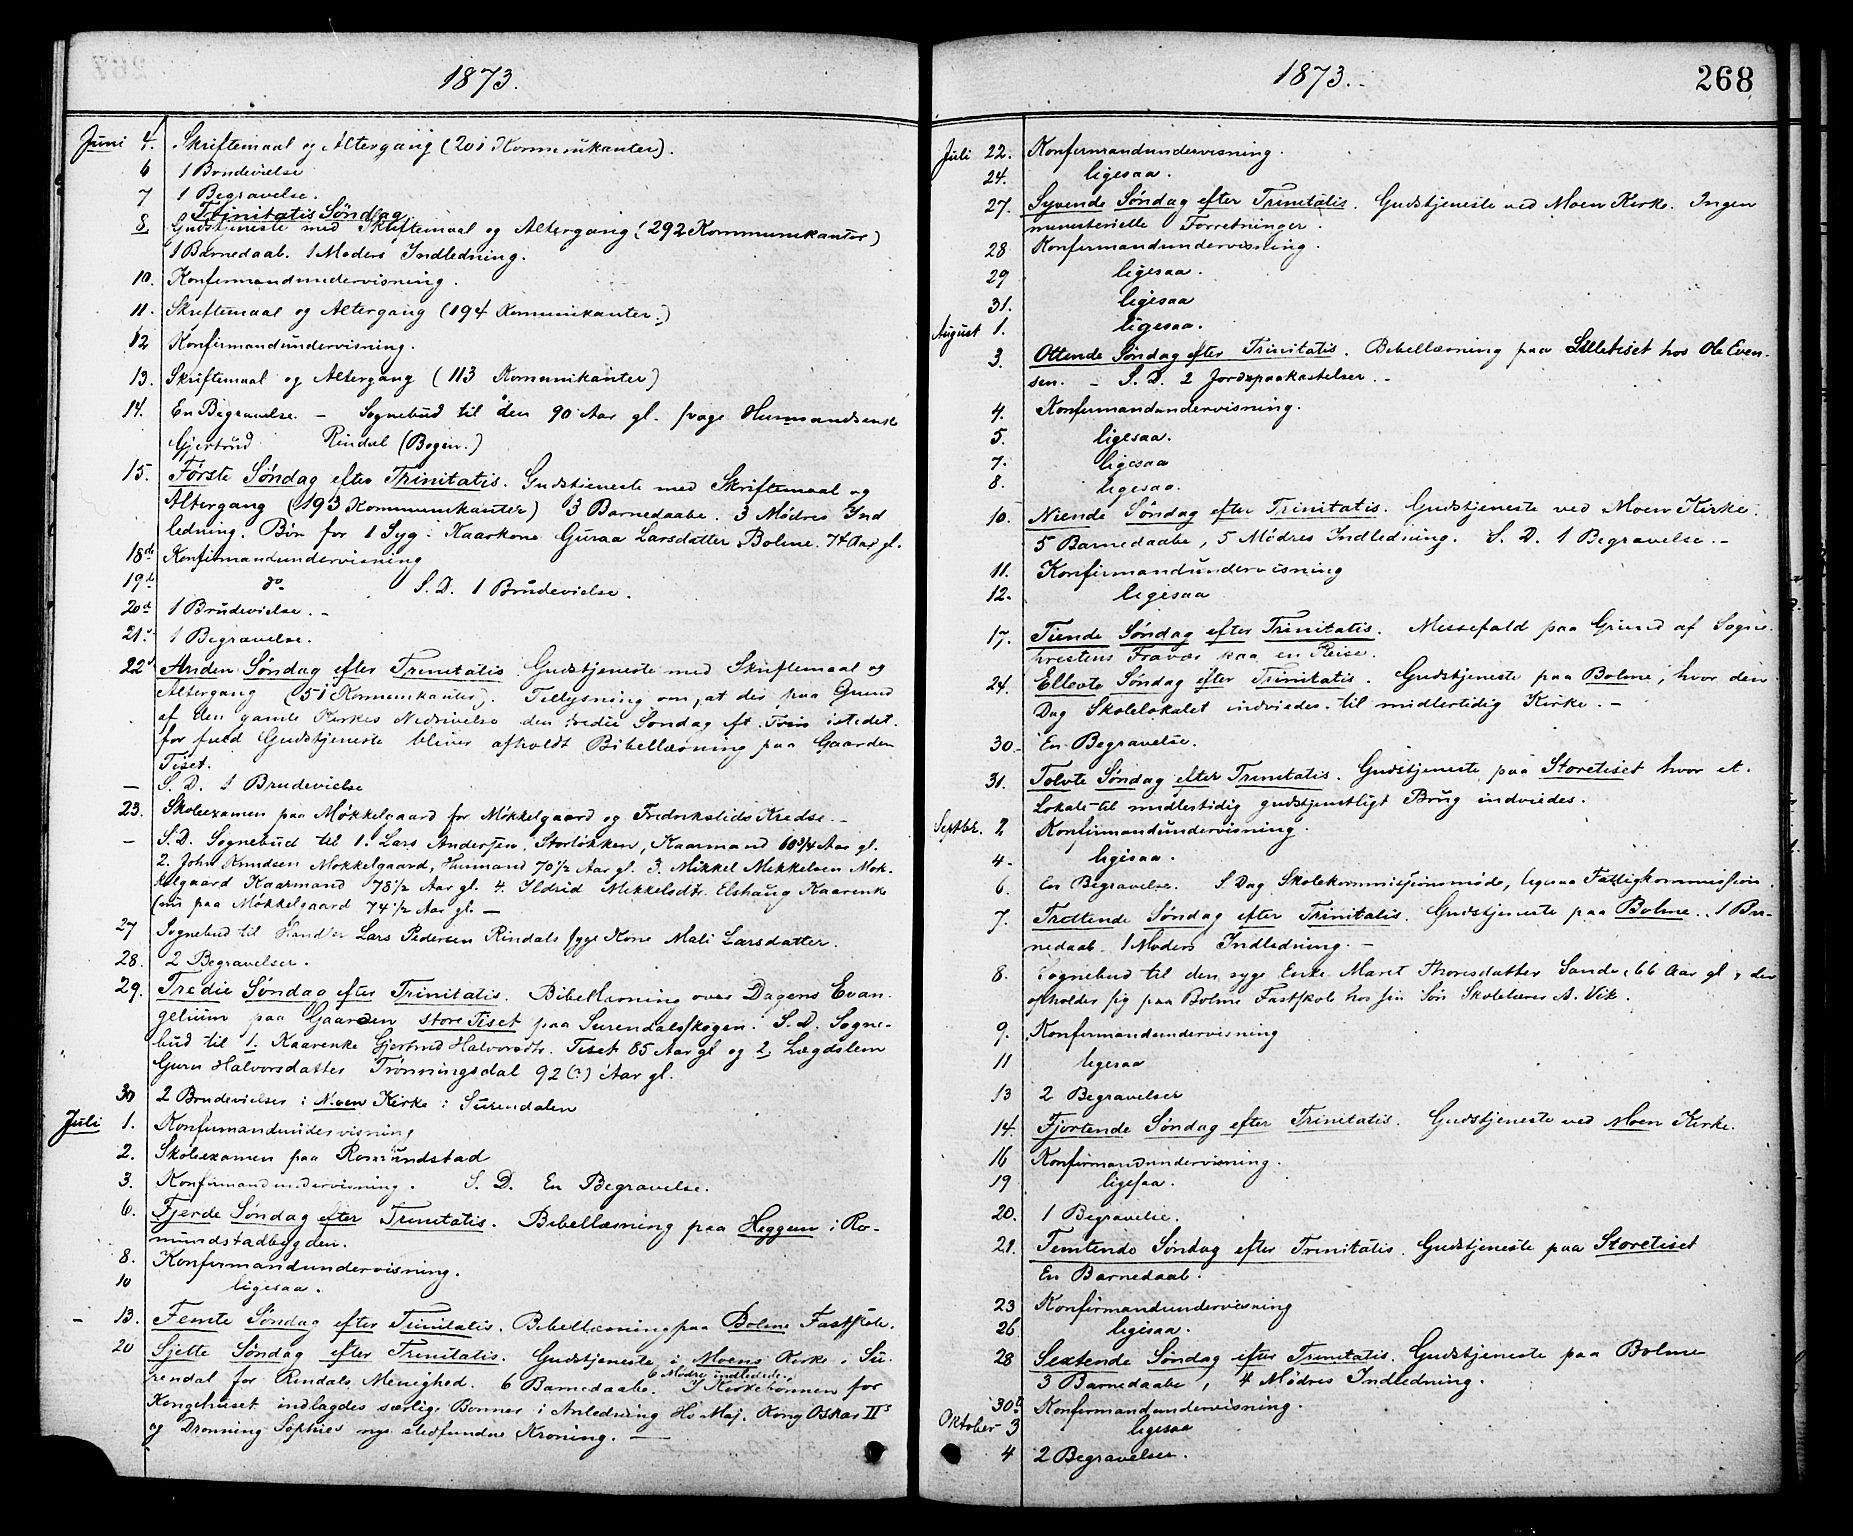 1873.
Juni 4. Skriftemaal og Altergang (201 Kommunikanter).
6 1 Brudevielse
7 1 Begravelse.
Trinitatis Søndag
8 Gudstjeneste med Skriftemaal og Altergang (292 Kommunikanter)
1 Barnedaab. 1 Moders Indledning.
10. Konfirmandundervisning.
11. Skriftemaal og Altergang (194 Kommunikanter.)
12 Konfirmandundervisning.
13. Skriftemaal og Altergang (113 Komunikanter)
14. En Begravelse. – Sognebud til den 90 Aar gl. svage Husmandsenke
Gjertrud Rindal (Bogen.)
15. Første Søndag efter Trinitatis. Gudstjeneste med Skriftemaal og
Altergang (193 Kommunikanter) 3 Barnedaabe. 3 Mødres Ind
ledning. Bøn for 1 Syg: Kaarkone Guraa Larsdatter Bolme. 74 Aar gl.
18de Konfirmandundervisning
19d do S. D. 1 Brudevielse.
20d 1 Brudevielse. –
21. 1 Begravelse.
22d Anden Søndag efter Trinitatis Gudstjeneste med Skriftemaal og
Altergang (51 Kommunikanter). Tillysning om, at der paa Grund
af den gamle Kirkes Nedrivelse den tredie Søndag eft. Trin istedet.
for fuld Gudstjeneste bliver afholdt Bibellæsning paa Gaarden
Tiset.
– S. D. 1 Brudevielse
23. Skoleexamen paa Møkkelgaard for Møkkelgaard og Fredrikslids Kredse. –
– S. D. Sognebud til 1. Lars Andersen Storløkken, Kaarmand 60 3/4 Aar gl.
2. John Knudsen Mokkelgaard, Husmand 70 1/2 Aar gl. 3. Mikkel Mikkelsen Mok-
kelgaard Kaarmand 78 1/2 Aar gl. 4. Ildrid Mikkelsdtr. Elshaug Kaarenke
(nu paa Møkkelgaard 74 1/2 Aar gl. –
27 Sognebud til Lars Pedersen Rindals syge Kone Mali Larsdatter.
28. 2 Begravelser.
29. Tredie Søndag efter Trinitatis. Bibellæsning over Dagens Evan
gelium paa Gaarden store Tiset paa Surendalsskogen. S. D. Sogne-
bud til 1. Kaarenke Gjertrud Halvorsdtr. Tiset 85 Aar gl og 2, Lægdslem
Guru Halvorsdatter Trønningsdal 92 (?) Aar gl.
30 2 Brudevielser i Moen Kirke i Surendalen
Juli 1. Konfirmandundervisning
2. Skoleexamen paa Romundstad
3. Konfirmandundervisning. S. D. En Begravelse.
6. Fjerde Søndag efter Trinitatis. Bibellæsning paa Heggem i Ro-
mundstadbygden.
8. Konfirmandundervisning.
10 ligesaa.
– 13. Femte Søndag efter Trinitatis. Bibellæsning paa Bolme Fastskole.
20 Sjette Søndag efter Trinitatis. Gudstjeneste i Moens Kirke i Su-
rendal for Rindals Menighed. 6 Barnedaabe. 6 Mødre indledede. I Kirkebønnen for
Kongehuset indlagdes særlige Bønner i Anledning Hs Maj. Kong Oskar IIs
og Dronning Sophies nys stedfundne Kroning. –
1873. 268
Juli 22. Konfirmandundervisning.
24. ligesaa.
27. Syvende Søndag efter Trinitatis. Gudstjeneste ved Moen Kirke. Ingen
ministerielle Forretninger.
28 Konfirmandundervisning.
29 ligesaa.
31. ligesaa
August 1. ligesaa.
3. Ottende Søndag efter Trinitatis. Bibellæsning paa Lilletiset hos Ole Even-
sen. – S. D. 2 Jordspaakastelser. –
4. Konfirmandundervisning.
5. ligesaa.
7. ligesaa
8. ligesaa.
10. Niende Søndag efter Trinitatis. Gudstjeneste ved Moen Kirke.
5 Barnedaabe, 5 Mødres Indledning. S. D. 1 Begravelse. –
11. Konfirmandundervisning
12. ligesaa
17. Tiende Søndag efter Trinitatis. Messefald paa Grund af Sogne-
prestens Fravær paa en Reise.
24. Ellevte Søndag efter Trinitatis. Gudstjeneste paa Bolme, hvor den
Dag Skolelokalet indviedes til midlertidig Kirke. –
30. En Begravelse.
31. Tolvte Søndag efter Trinitatis. Gudstjeneste paa Storetiset hvor et
Lokale til midlertidig gudstjenstligt Brug indviedes.
Septbr. 2 Konfirmandundervisning.
4. ligesaa.
6. En Begravelse. S. Dag Skolekommissionsmøde, ligesaa Fattigkommission.
7. Trettende Søndag efter Trinitatis. Gudstjeneste paa Bolme. 1 Bar-
nedaab. 1 Moders Indledning. –
8. Sognebud til den syge Enke Maret Thoresdatter Sande, 66 Aar gl, der
opholder sig paa Bolme Fastskole hos sin Søn Skolelærer A. Vik.
9. Konfirmandundervisning
11 ligesaa
13 2 Begravelser
14. Fjortende Søndag efter Trinitatis. Gudstjeneste ved Moen Kirke.
16 Konfirmandundervisning.
19 ligesaa.
20. 1 Begravelse.
21. Femtende Søndag efter Trinitatis. Gudstjeneste paa Storetiset
En Barnedaab.
23 Konfirmandundervisning
26. ligesaa.
28 Sextende Søndag efter Trinitatis. Gudstjeneste paa Bolme
3 Barnedaabe, 4 Mødres Indledning.
30d Konfirmandundervisning.
Oktober 3 ligesaa
4 2 Begravelser.